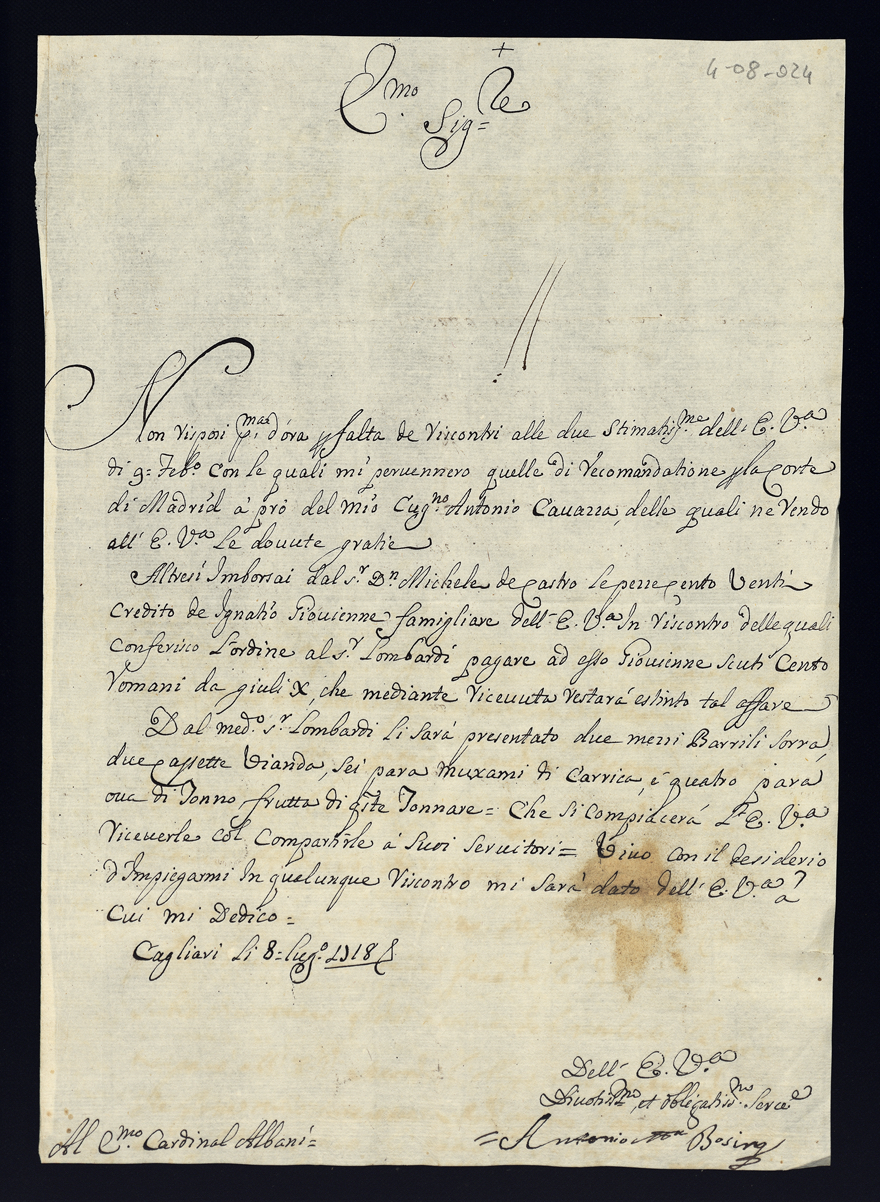 +
4-08-024
E.mo Sig=re
Non risposi p.ma d'ora p falta de riscontri alle due stimatis.me dell' E. V.a
di 9= Feb.o con le quali mi peruennero quelle di recomandatione p la Corte
di Madrid à prò del mio Cug.no Antonio Cauazza, delle quali ne rendo
all' E. V.a Le douute gratie
Altresi Imborsai dal s.r D.n Michele de Castro le pezze Cento Venti
Credito de Ignatio Giouienne famigliare dell' E. V.a In riscontro delle quali
Conferisco L'ordine al s.r Lombardi pagare ad esso Giouienne scuti Cento
romani da giuli X, che mediante riceuuta restará estinto tal affare
Dal med.o s.r Lombardi Li Sará presentato due mezzi Barrili Sorra,
due Cassette Vianda, Sei para Muxami di Carrica, é quatro para
oua di Tonno frutta di q.ste Tonnare= Che Si Compiacerá L' E. V.a
riceuerle col Compartirle á Suoi Seruitori= Viuo Con il desiderio
d'Impiegarmi In qualunque riscontro mi Sará dato dell' E. V.a a
Cui mi Dedico=
Cagliari Li 8= lug.o 1718
Dell' E. V.a
Diuotis.mo, et obligatis.mo Seru.e
Al E.mo Cardinal Albani= = Antonio Bosing